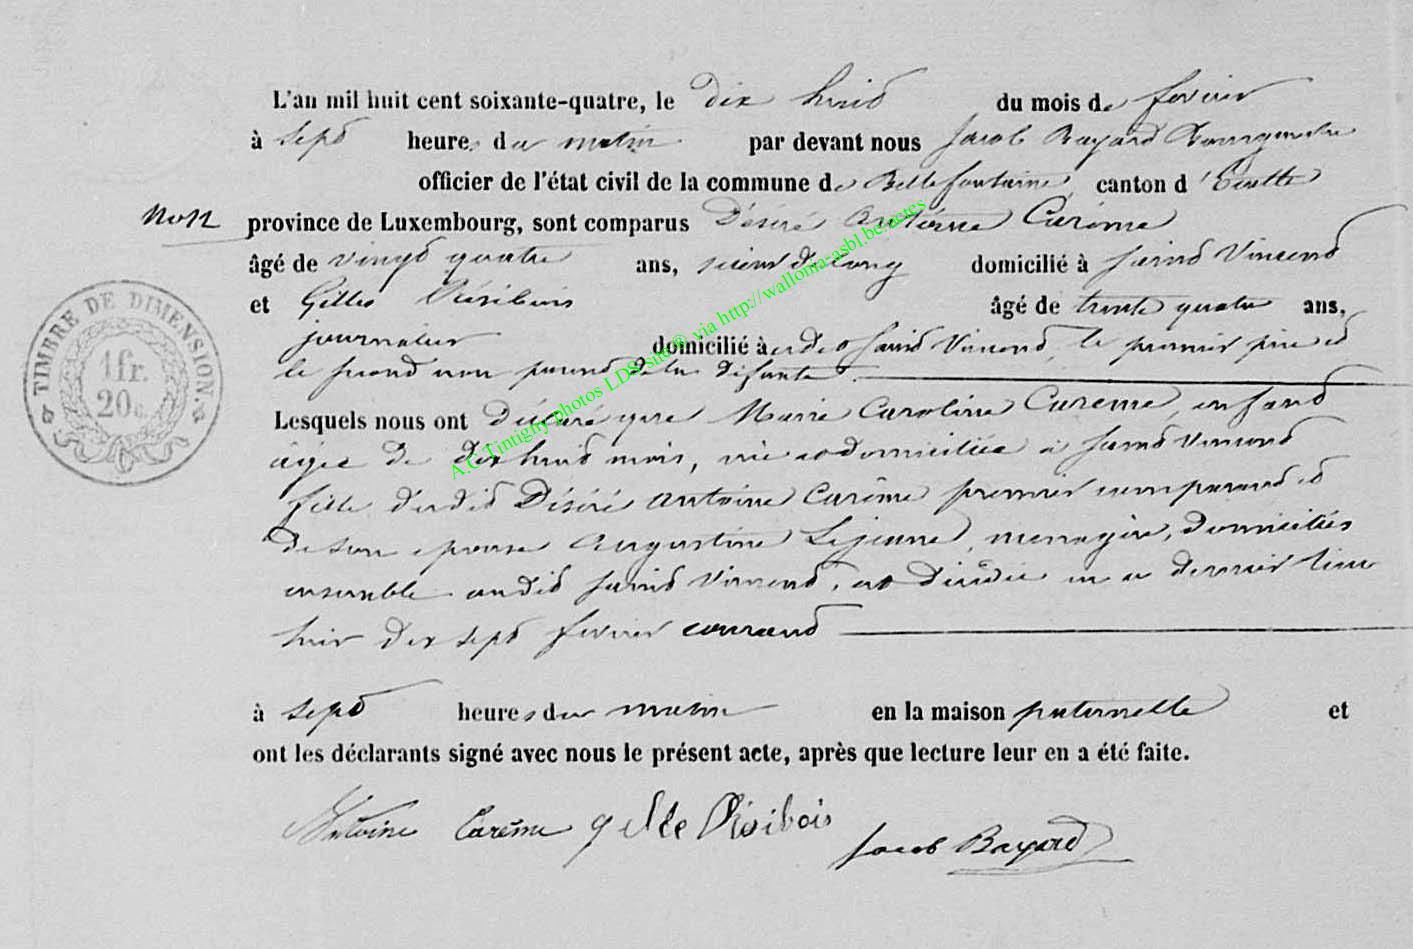 L'an mil huit cent soixante-quatre, le dix huid du mois de fevrier
à sepd heures du matin par devant nous Jacob Bayard Bourgmestre
officier de l'état civil de la commune de Bellefontaine, canton d'Etalle
province de Luxembourg, sont comparus Désiré Antoine Carême
âgé de vingd quatre ans, scieur de long domicilié à Saind Vincend
et Gilles Résibois âgé de trente quatre ans,
journalier domicilié audid Saind Vincend, le premier père ed
le second non parend de la défunte.
Lesquels nous ont déclaré que Marie Caroline Careme, enfand
âgée de dix huid mois, née et domiciliée à Saind Vincend
fille dudid Désiré Antoine Carême premier comparand ed
de son epouse Augustine Lejeune, menagère, domiciliés
ensemble audid Saind Vincend, est décédée en ce dernier lieu
hier dix sepd fevrier courand
à sepd heures du matin en la maison paternelle et
ont les déclarants signé avec nous le présent acte, après que lecture leur en a été faite.
Antoine Carême gille Résibois Jacob Bayard
TIMBRE DE DIMENSION
1 fr.
20 c.
A.C. Tintigny photos LDS site® via http://wallonia-asbl.be/actes